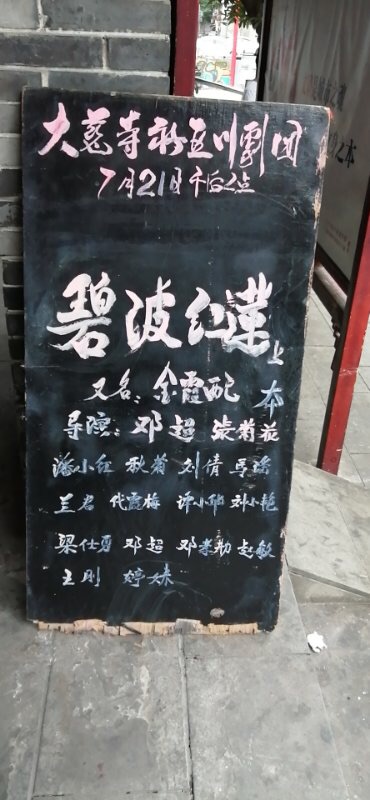 大慈寺新五川剧团
7月21日午后2点
碧波红莲上
又名:金霞配 本
导演:邓超 张菊花
潘小红 秋菊 刘倩 马瑶
兰君 代霞梅 谭小华 刘小艳
梁仕勇 邓超 邓米勒 赵敏
王刚 婷妹